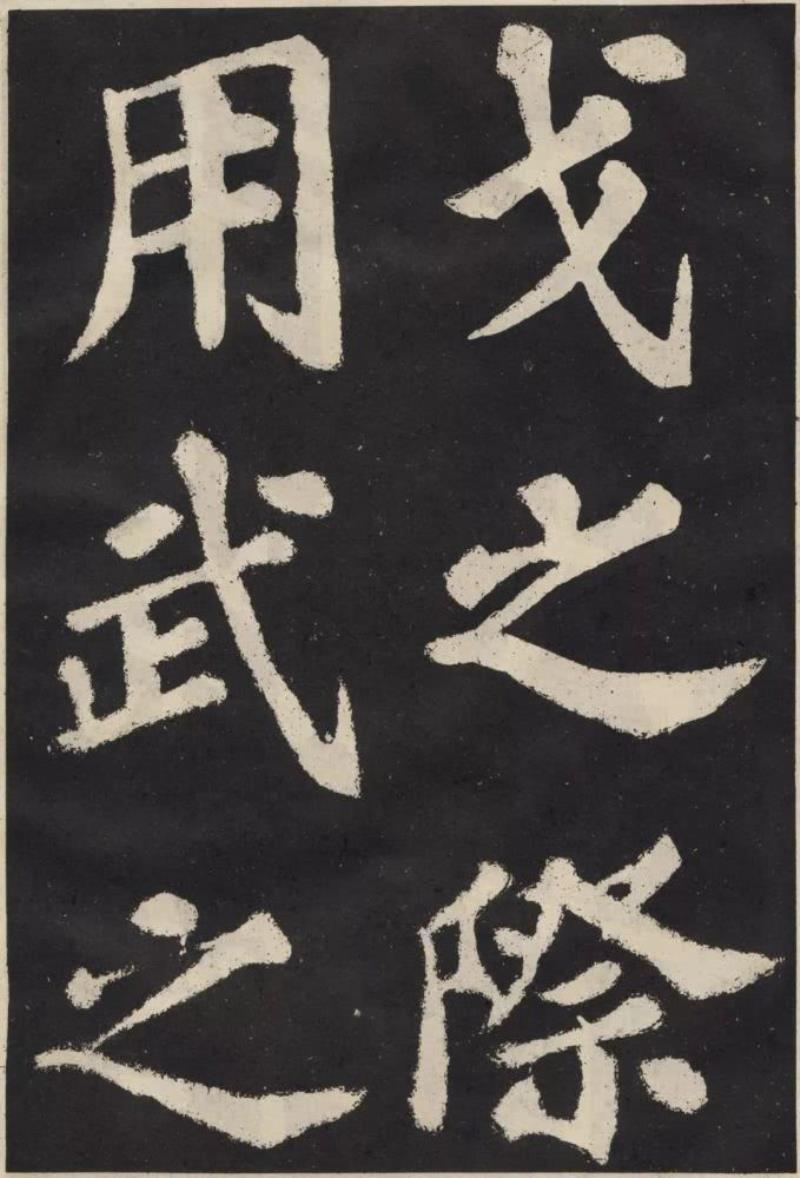 戈之際
用武之